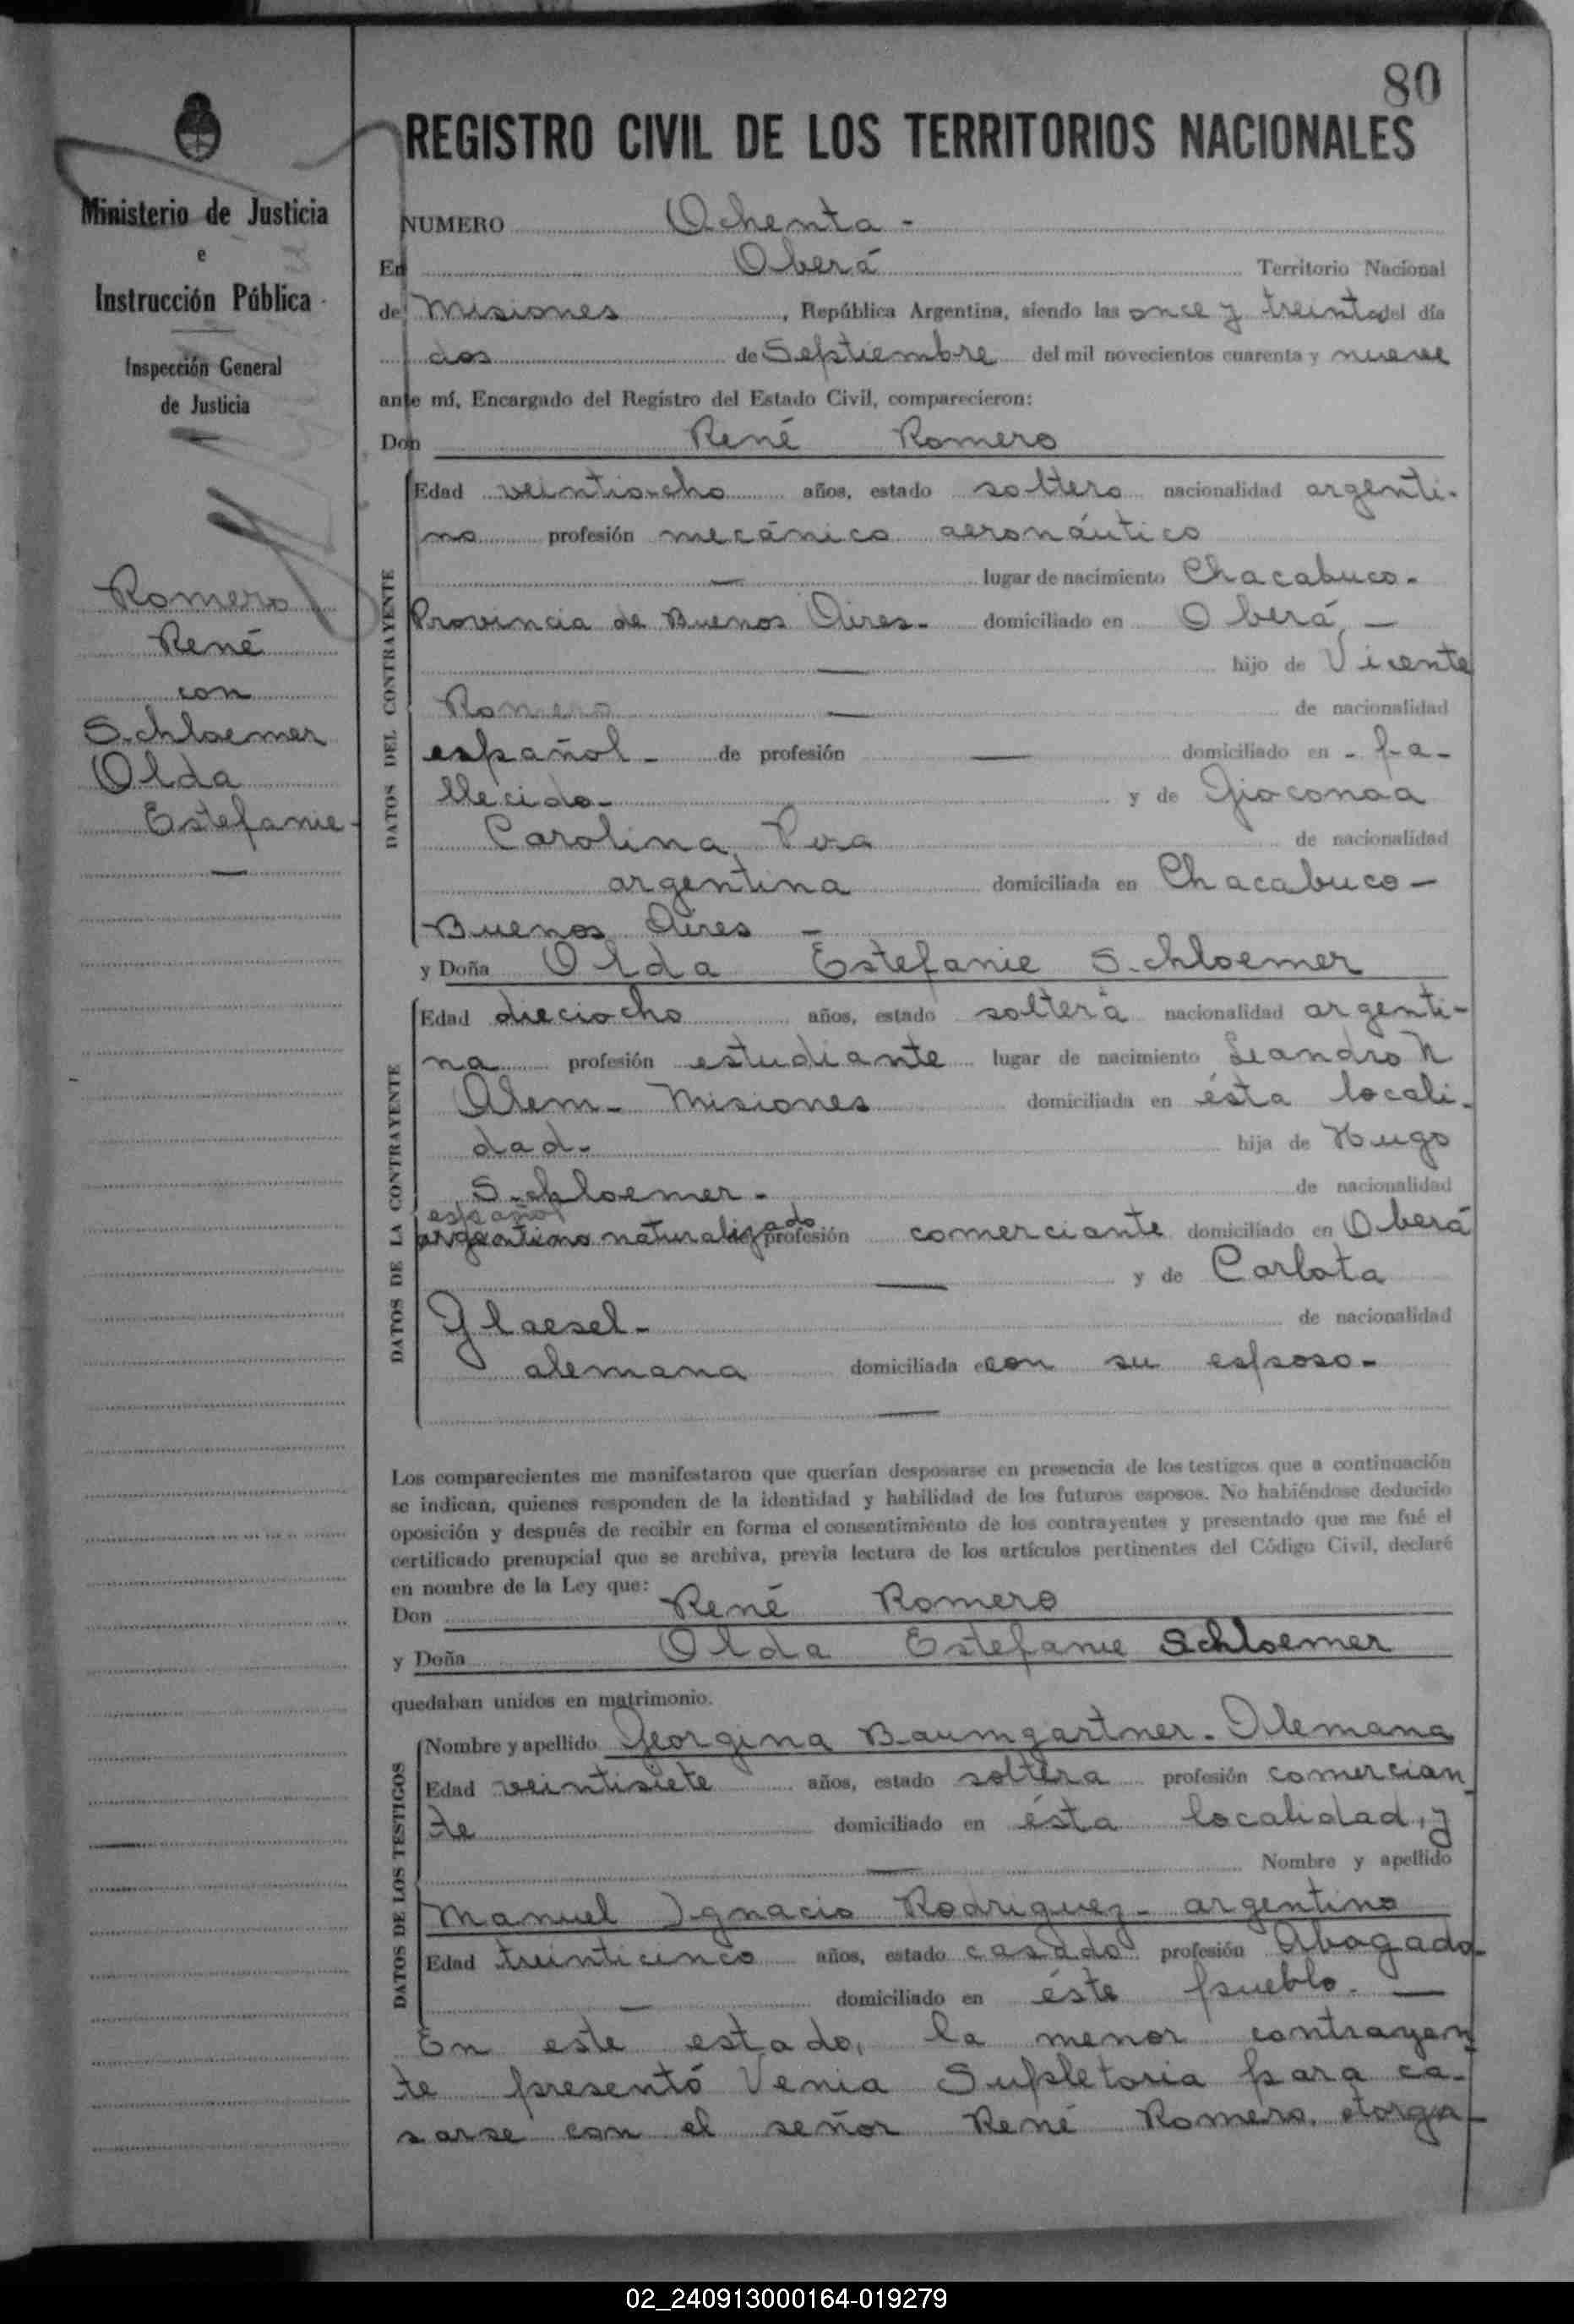 80
REGISTRO CIVIL DE LOS TERRITORIOS NACIONALES
Ministerio de Justicia
e
Instrucción Pública
Inspección General
de Justicia
Romero
René
con
Schloemer
Olda
Estefanie-
NUMERO Ochenta -
En Oberá Territorio Nacional
de Misiones, República Argentina, siendo las once y treinta del día
dos de Septiembre del mil novecientos cuarenta y nueve
ante mí, Encargado del Registro del Estado Civil, comparecieron:
Don René Romero
DATOS DEL CONTRAYENTE
Edad veintiocho años, estado soltero nacionalidad argenti-
no profesión mecánico aeronáutico
— lugar de nacimiento Chacabuco-
Provincia de Buenos Aires- domiciliado en Oberá —
— hijo de Vicente
Romero — de nacionalidad
español- de profesión — domiciliado en - fa-
llecido- y de
Carolina de nacionalidad
argentina domiciliada en Chacabuco-
Buenos Aires -
y Doña Olda Estefanie Schloemer
DATOS DE LA CONTRAYENTE
Edad dieciocho años, estado soltera nacionalidad argenti-
na profesión estudiante lugar de nacimiento Leandro N
Alem- Misiones domiciliada en ésta locali-
dad- hija de Hugo
Schloemer- de nacionalidad
español
argentino naturalizado profesión comerciante domiciliado en Oberá
— y de Carlota
Glaesel- de nacionalidad
alemana domiciliada con su esposo-
—
Los comparecientes me manifestaron que querían desposarse en presencia de los testigos que a continuación
se indican, quienes responden de la identidad y habilidad de los futuros esposos. No habiéndose deducido
oposición y después de recibir en forma el consentimiento de los contrayentes y presentado que me fué el
certificado prenupcial que se archiva, previa lectura de los artículos pertinentes del Código Civil, declaré
en nombre de la Ley que:
Don René Romero
y Doña Olda Estefanie Schloemer
quedaban unidos en matrimonio.
DATOS DE LOS TESTIGOS
Nombre y apellido Georgina Baumgartner- Alemana
Edad veintisiete años, estado soltera profesión comercian
te domiciliado en ésta localidad, y
— Nombre y apellido
Manuel Ignacio Rodriguez- argentino
Edad treinticinco años, estado casado profesión Abogado-
— domiciliado en éste pueblo. —
En este estado, la menor contrayen
te presentó Venia Supletoria para ca-
sarse con el señor René Romero, otorga-
02_240913000164-019279